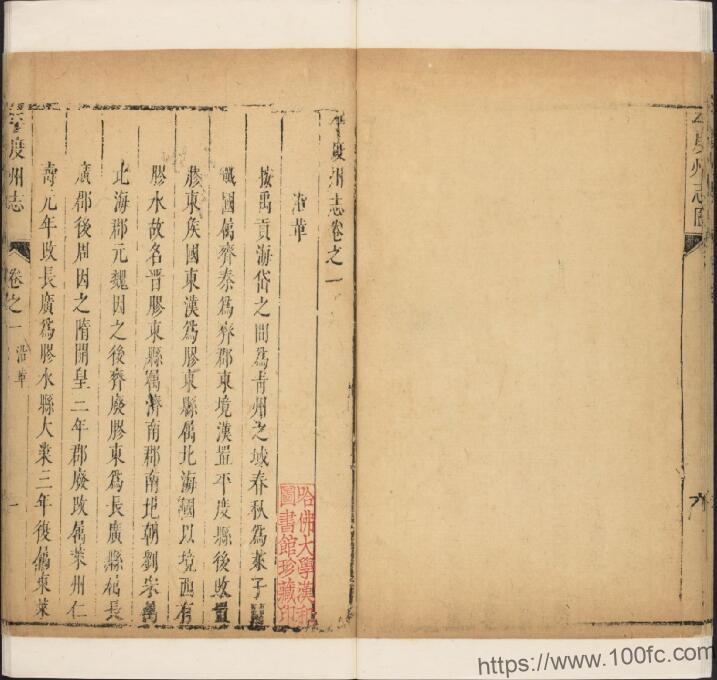 平度州志圖
平度州志卷之一
沿革
按禹貢海岱之間爲青州之域春秋爲萊子國
戰國属齊秦爲齊郡東境漢置平度縣後改置
膠東侯國東漢爲膠東縣属北海國以境西有
膠水故名晋膠東縣屬濟南郡南北朝劉宋属
北海郡元魏因之後齊廢膠東爲長廣縣
廣郡後周因之隋開皇二年郡廢改属萊州仁
壽元年改長廣爲膠水縣大業三年復屬東萊
平度州志
卷之一
沿革
一
哈佛大學漢和
圖書館珍藏印
https://www.100fc.com